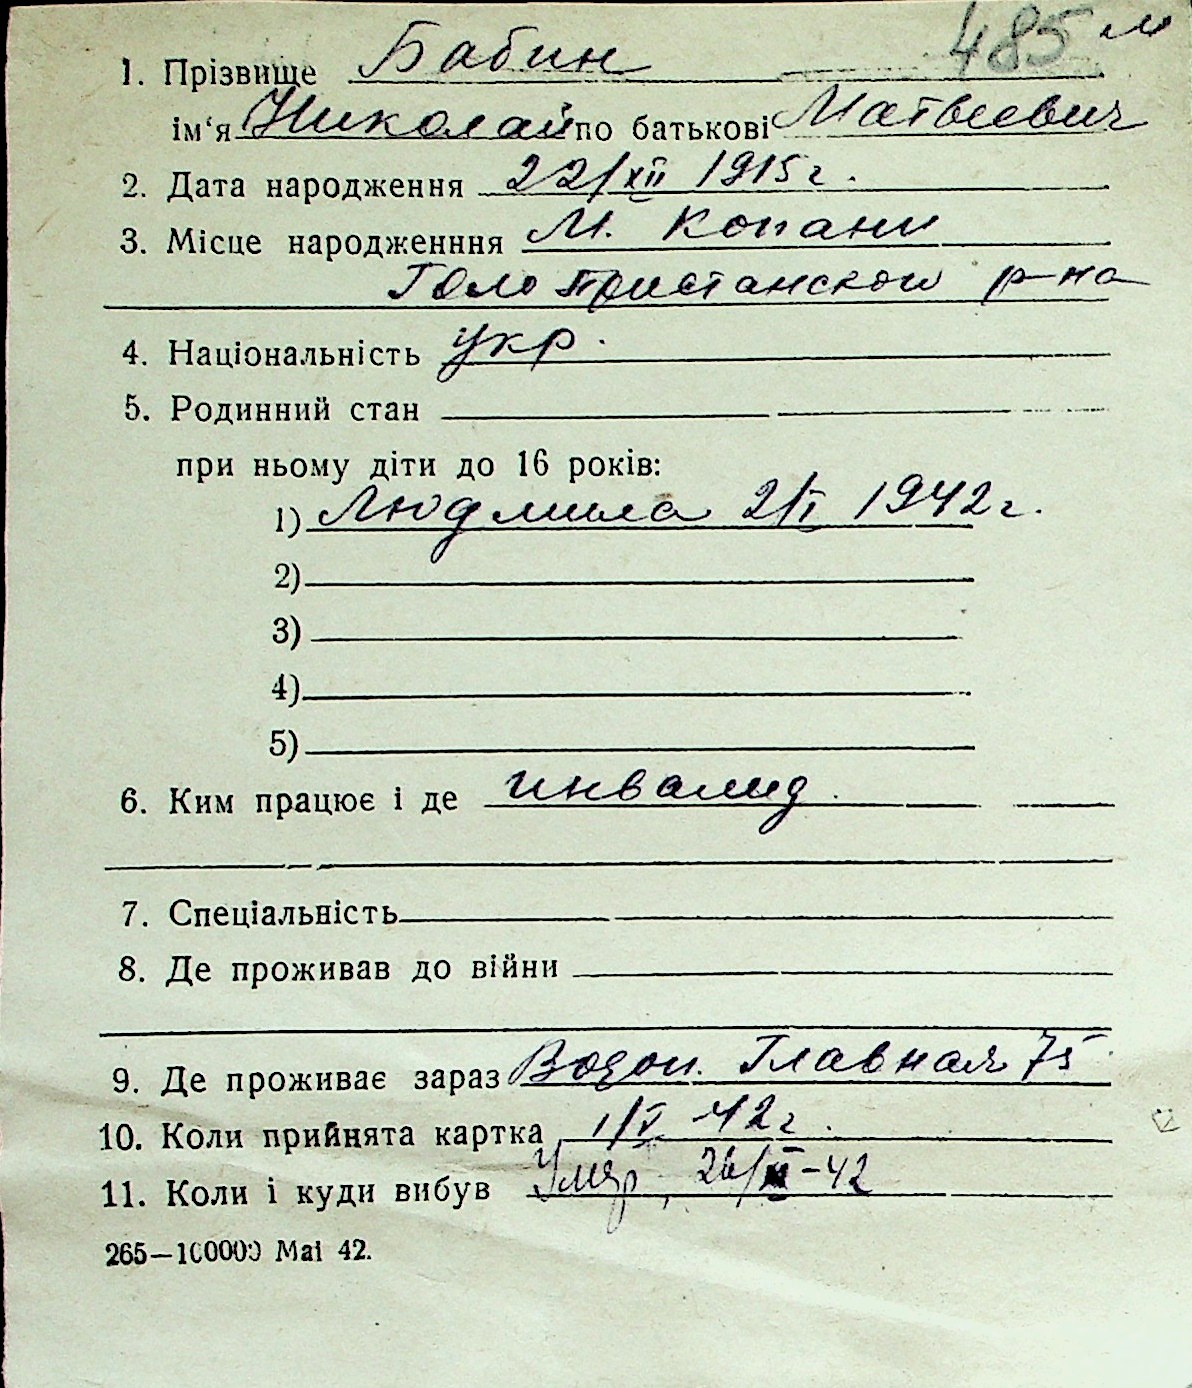 485 м
1. Прізвище Бабин
ім‘я Николай по батькові Матвеевич
2. Дата народження 22/XII 1915 г.
3. Місце народженння М. Копани
Голопристанского р-на
4. Національність укр.
5. Родинний стан
при ньому діти до 16 років:
1) Людмила 2/I 1942 г.
2)
3)
4)
5)
6. Ким працює і де инвалид.
7. Спеціальність
8. Де проживав до війни
9. Де проживає зараз Водоп. Главная 75
10. Коли прийнята картка 1/V 42 г.
11. Коли і куди вибув Умер, 26/ -42
265—100000 Mai 42.